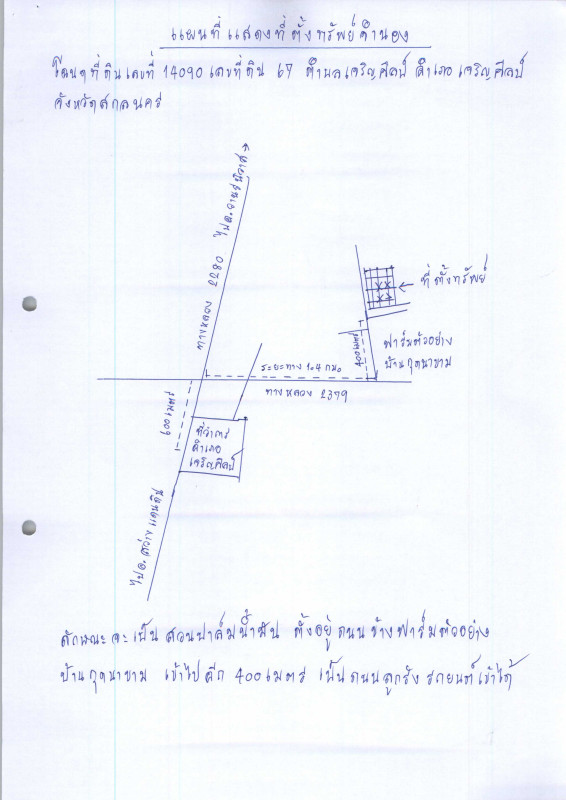 แผนที่แสดงที่ตั้งทรัพย์จำนอง
โฉนดที่ดินเลขที่ 14090 เลขที่ดิน 67 ตำบลเจริญศิลป์ อำเภอเจริญศิลป์
จังหวัดสกลนคร
ไปอ.วานรนิวาส
ทางหลวง 2280
ที่ตั้งทรัพย์
ฟาร์มตัวอย่าง
บ้านกุดนาขาม
400 เมตร
ระยะทาง 1.4 กม.
ทางหลวง 2379
600 เมตร
ที่ว่าการ
อำเภอ
เจริญศิลป์
ไปอ.สว่างแดนดิน
ลักษณะจะเป็นสวนปาล์มน้ำมัน ตั้งอยู่ถนนข้างฟาร์มตัวอย่าง
บ้านกุดนาขาม เข้าไปอีก 400 เมตร เป็นถนนลูกรัง รถยนต์เข้าได้